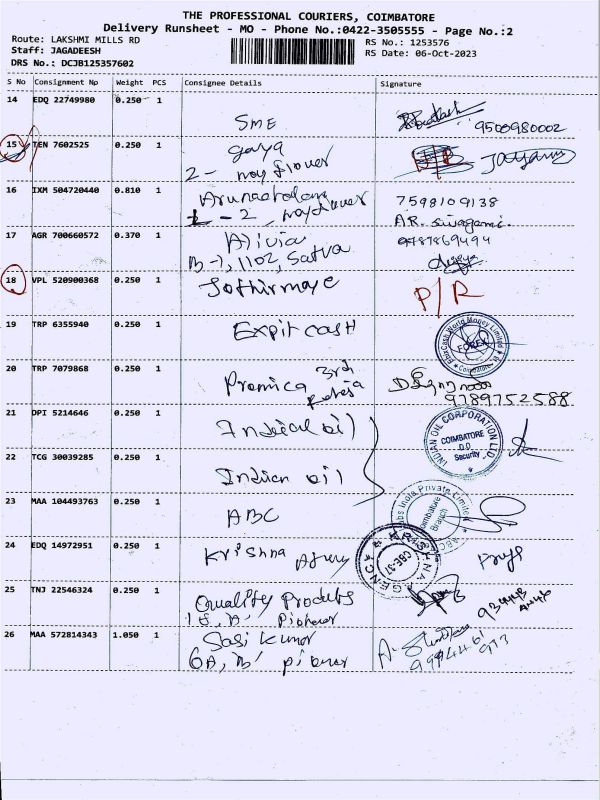 THE PROFESSIONAL COURIERS, COIMBATORE
Delivery Runsheet - MO - Phone No.:0422-3505555 - Page No.:2
Route: LAKSHMI MILLS RD
Staff: JAGADEESH
DRS No.: DCJB125357602
RS No.: 1253576
RS Date: 06-Oct-2023
S No Consignment Np Weight PCS Consignee Details Signature
14 EDQ 22749980 0.250 1
SME
9500980002
15 TEN 7602525 0.250 1
gaya
2 -
16 IXM 504720440 0.810 1
7598109138
2 - 2,
A.R. Sivagami.
17 AGR 700660572 0.370 1
Alivia
B-1, 1102, Satva
18 VPL 520900368 0.250 1
P/R
19 TRP 6355940 0.250 1
Expit cash
EbixCash World Money Limited
FOREX
Coimbatore
20 TRP 7079868 0.250 1
3rd
9789752588
21 DPI 5214646 0.250 1
Indian oil
INDIAN OIL CORPORATION LTD.
COIMBATORE
D.O
Security
22 TCG 30039285 0.250 1
Indian oil
23 MAA 104493763 0.250 1
ABC
India Private Limited
Coimbatore
Branch
24 EDQ 14972951 0.250 1
Krishna
KRISHNA AGENCY
CBE-37
25 TNJ 22546324 0.250 1
Quality Produts
26 MAA 572814343 1.050 1
Sasi kumar
6A, 'B'